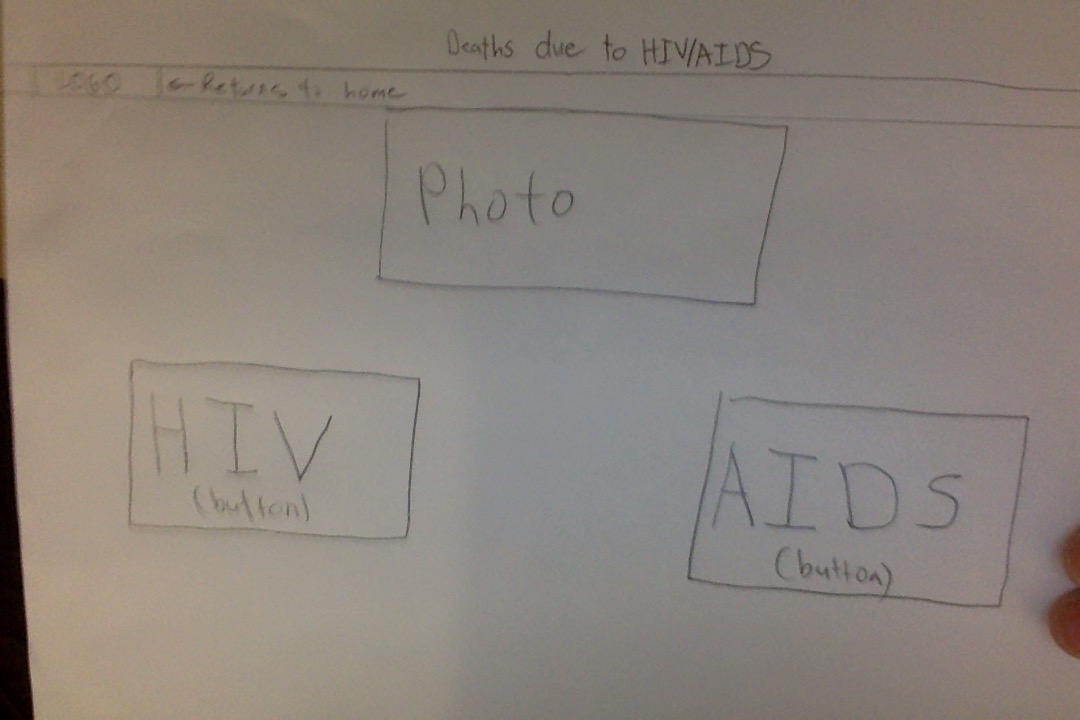 Deaths due to HIV/AIDS
LOGO ← Returns to home
Photo
HIV
(button)
AIDS
(button)